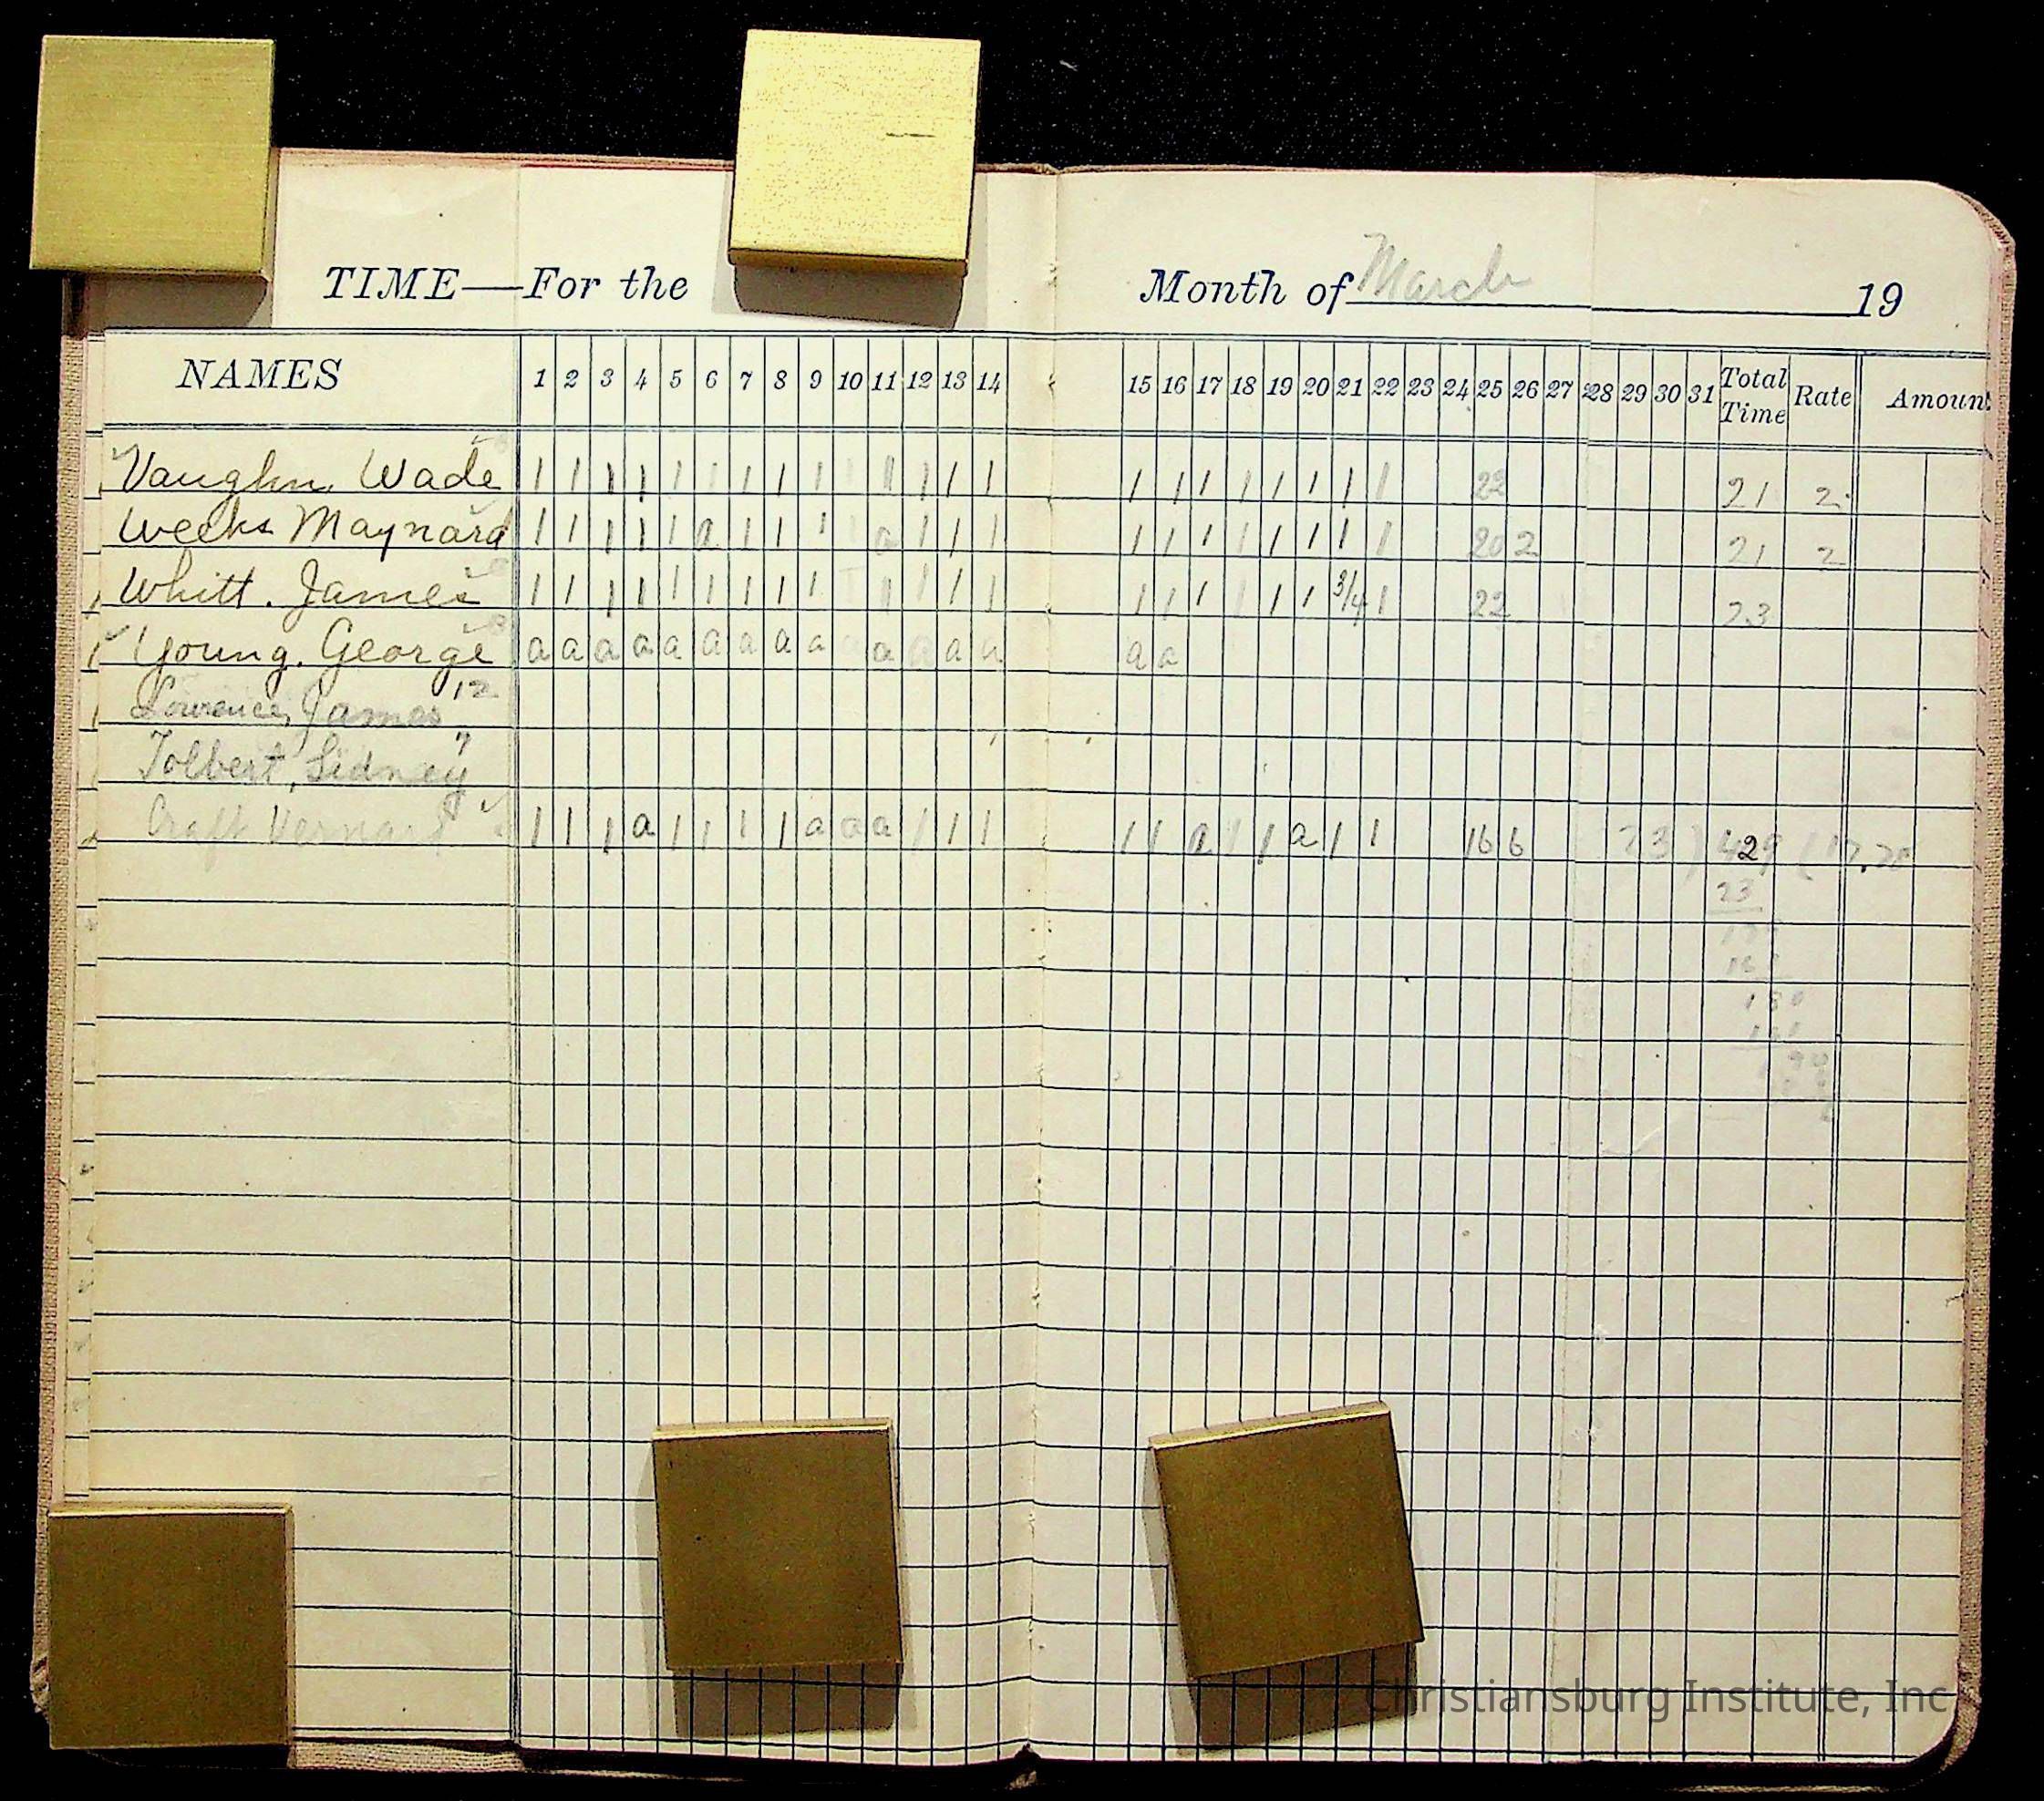 TIME—For the Month of March 19
NAMES 1 2 3 4 5 6 7 8 9 10 11 12 13 14 15 16 17 18 19 20 21 22 23 24 25 26 27 28 29 30 31 Total Time Rate Amount
Vaughn, Wade 1 1 1 1 1 1 1 1 1 1 1 1 1 1 1 1 1 1 1 1 1 1 22 21 2
Weeks Maynard 1 1 1 1 1 a 1 1 1 1 a 1 1 1 1 1 1 1 1 1 1 1 20 2 21 2
Whitt. James 1 1 1 1 1 1 1 1 1 1 1 1 1 1 1 1 1 1 1 1 3/4 1 22 23
Young. George a a a a a a a a a a a a a a a a
12
Lowrence, James
7
Tolbert, Sidney
Craft 1 1 1 a 1 1 1 1 a a a 1 1 1 1 1 a 1 1 a 1 1 16 6 23 ) 429 (
23
180
Christiansburg Institute, Inc